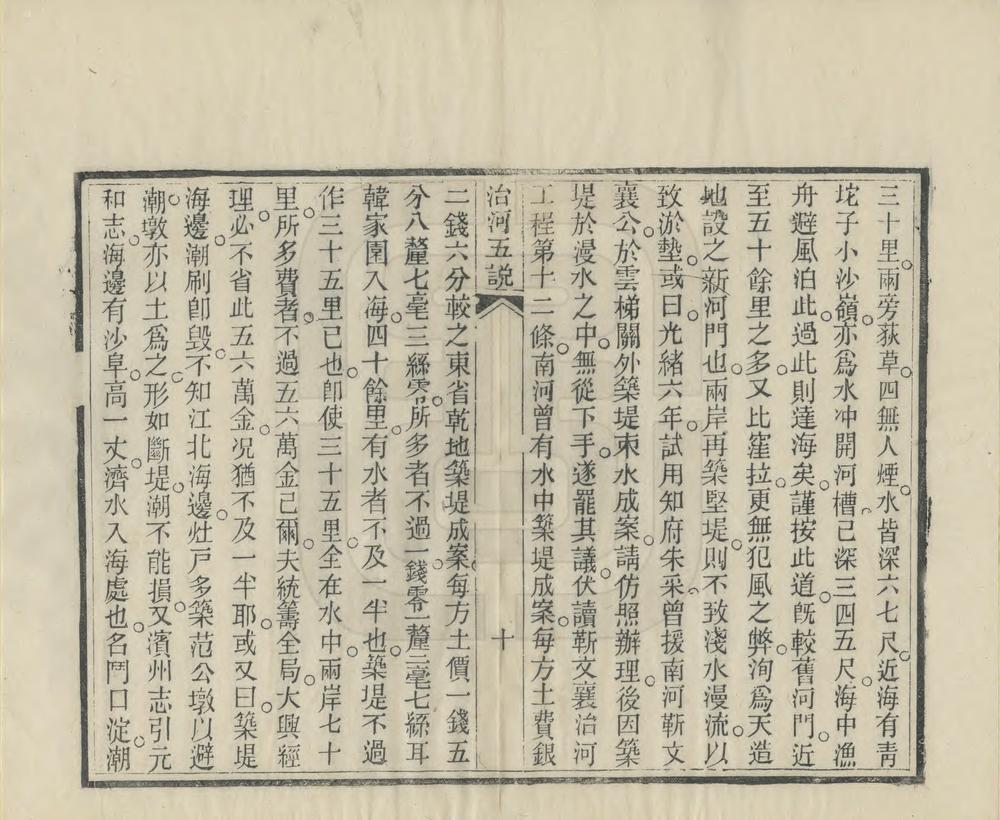 三十里兩旁荻草四無人煙水皆深六七尺近海有青
坨子小沙嶺亦爲水冲開河槽已深三四五尺海中漁
舟避風泊此過此則達海矣謹按此道旣較舊河門近
至五十餘里之多又比窪拉更無犯風之弊洵爲天造
地設之新河門也兩岸再築堅堤則不致淺水漫流以
致淤墊或曰光緒六年試用知府朱采曾援南河靳文
襄公於雲梯關外築堤束水成案請仿照辦理後因築
堤於漫水之中無從下手遂罷其議伏讀靳文襄治河
工程第十二條南河曾有水中築堤成案每方土費銀
治河五說
十
二錢六分較之東省乾地築堤成案每方土價一錢五
分八釐七毫三絲零所多者不過一錢零一釐二毫七絲耳
韓家園入海四十餘里有水者不及一半也築堤不過
作三十五里已也卽使三十五里全在水中兩岸七十
里所多費者不過五六萬金已爾夫統籌全局大興經
理必不省此五六萬金况猶不及一半耶或又曰築堤
海邊潮刷卽毀不知江北海邊灶戸多築范公墩以避
潮墩亦以土爲之形如斷堤潮不能損又濱州志引元
和志海邊有沙阜高一丈濟水入海處也名鬥口淀潮